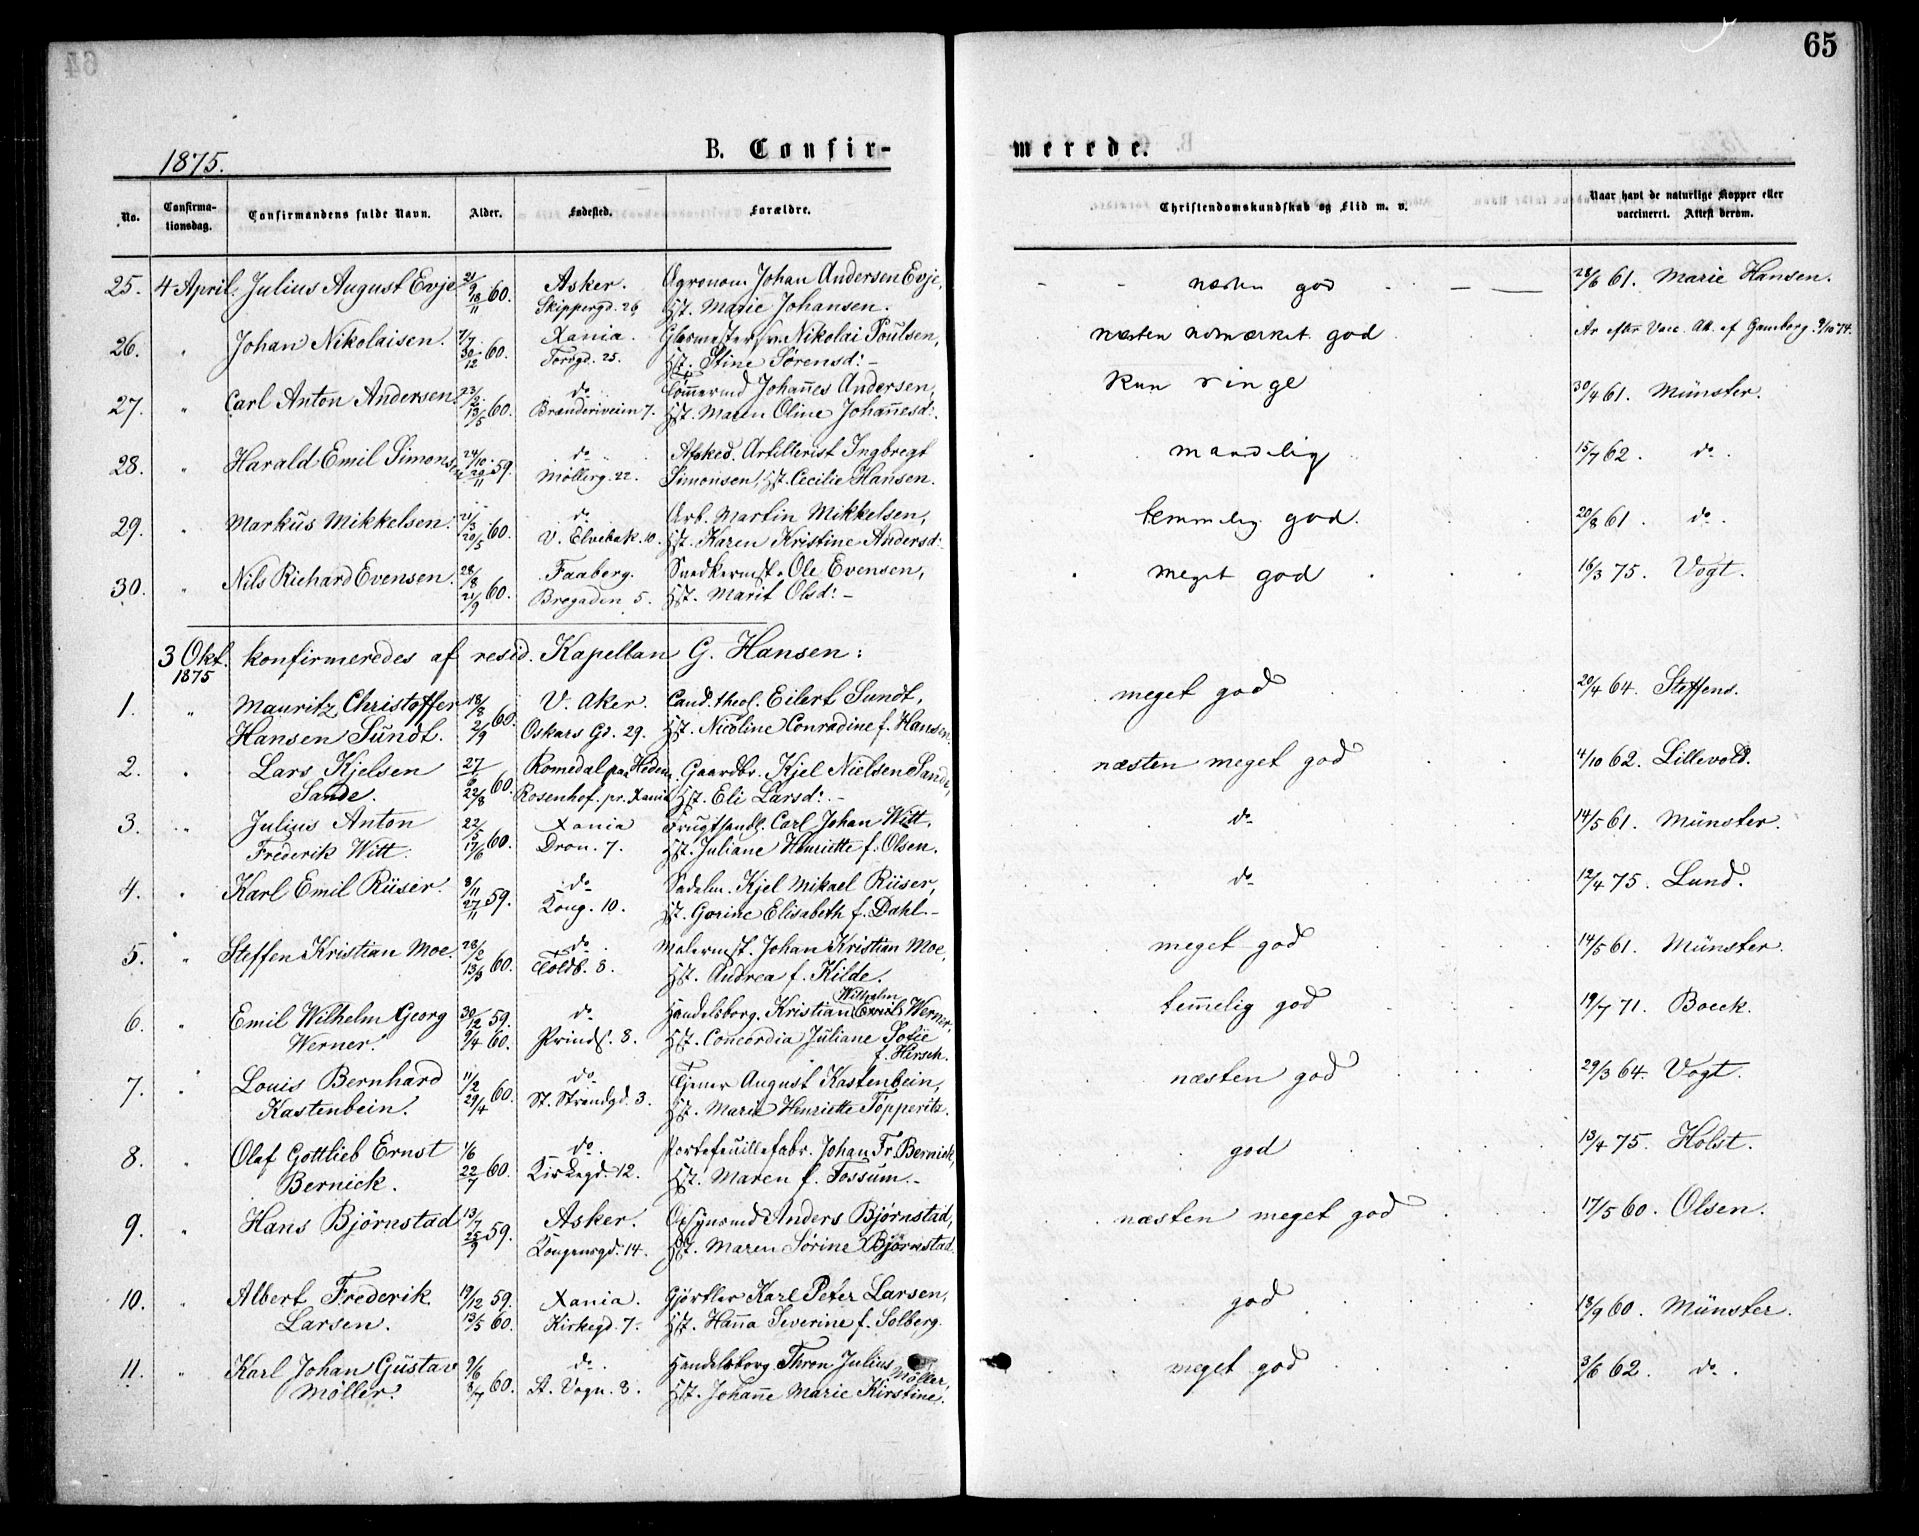 65
1875.
B. Confir-
merede.
No.
Confirma-
tionsdag.
Confirmandens fulde Navn.
Alder.
Fødested.
Forældre.
Christendomskundskab og Flid m. v.
Naar havt de naturlige Kopper eller
vaccineret. Attest derom.
25. 4 April. Julius August Evje 21/9 18/11 60. Asker. Agronom Johan Andersen Evje, næsten god 28/6 61. Marie Hansen.
Skippergd. 26 Hst. Marie Johansen.
26. " Johan Nikolaisen. 7/7 30/12 60. Xania. Glasmestersv. Nikolai Poulsen, næsten udmærket god Ar efter Vacc. Att. af Gamborg 9/10 74.
Torvgd. 25. Hst. Stine Sørensd: -
27. " Carl Anton Andersen 23/2 13/5 60. do Tømermd Johanes Andersen, kun ringe 30/4 61. Münster.
Brænderiveien 7. Hst. Maren Oline Johanesd:
28. " Harald Emil Simonsen 24/10 29/11 59. do Afsked. Artillerist Ingbregt maadelig 15/7 62. do.
Møllerg. 22. Simonsen, Hst. Cecilie Hansen.
29. " Markus Mikkelsen. 21/3 20/5 60. do Arb. Martin Mikkelsen, temmelig god. 20/8 61. do.
V. Elvebak. 10. Hst. Karen Kristine Andersd:
30. " Nils Richard Evensen. 28/8 21/9 60. Faaberg. Snedkermst. Ole Evensen, meget god 16/3 75. Vogt.
Brogaden 5. Hst. Marit Olsd: -
3 Okt. konfirmeredes af resid. Kapellan G. Hansen:
1875
1. " Mauritz Christoffer 18/8 2/9 60. V. Aker. Cand. theol. Eilert Sundt, meget god 20/4 64. Steffens.
Hansen Sundt. Oskars Gd. 29. Hst. Nicoline Conradine f. Hansen.
2. " Lars Kjelsen 27/6 22/8 60. Romedal paa Hedem. Gaardbr. Kjel Nielsen Sande, næsten meget god 4/10 62. Lillevold.
Sande. Rosenhof. pr. Xania Hst. Eli Larsd: -
3. " Julius Anton 22/5 17/6 60. Xania Frugthandl. Carl Johan Witt. do 14/5 61. Münster.
Frederik Witt. Dron. 7. Hst. Juliane Henriette f. Olsen.
4. " Karl Emil Rüser. 8/11 27/11 59. do Sadelm. Kjel Mikael Rüser, do 12/4 75. Lund.
Kong. 10. Hst. Gorine Elisabeth f. Dahl -
5. " Steffen Kristian Moe. 28/2 13/5 60. do Malermst. Johan Kristian Moe, meget god 14/5 61. Münster.
Toldb. 8. Hst. Andrea f. Kilde.
6. " Emil Wilhelm Georg 30/12 59. do Handelsborg. Kristian Wilhelm Werner, temelig god 19/7 71. Boeck.
Werner. 9/4 60. Prinds. 8. Hst. Concordia Juliane Sofie
f. Hirsch.
7. " Louis Bernhard 11/2 29/4 60. do Tjener August Kastenbein, næsten god 29/3 64. Vogt.
Kastenbein. St. Strandgd. 3. Hst. Marie Henriette Töpperitz.
8. " Olaf Gottlieb Ernst 1/6 22/7 60. do. Portefeuillefabr. Johan Fr. Bernick, god 13/4 75. Holst.
Bernick. Kirkegd. 12. Hst. Maren f. Fossum. -
9. " Hans Bjørnstad 13/7 25/9 59. Asker. Opsynsmd Anders Bjørnstad, næsten meget god 17/5 60. Olsen.
Kongensgd. 14. Hst. Maren Sørine Bjørnstad.
10. " Albert Frederik 19/12 59. Xania. Gjørtler Karl Peter Larsen, god 18/9 60. Münster.
Larsen. 13/5 60. Kirkegd. 7. Hst. Hana Severine f. Solberg.
11. " Karl Johan Gustav 9/6 8/7 60. do Handelsborg. Thron Julius Möller, meget god 3/6 62. do.
Möller. St. Vogn. 8. Hst. Johane Marie Kirstine.